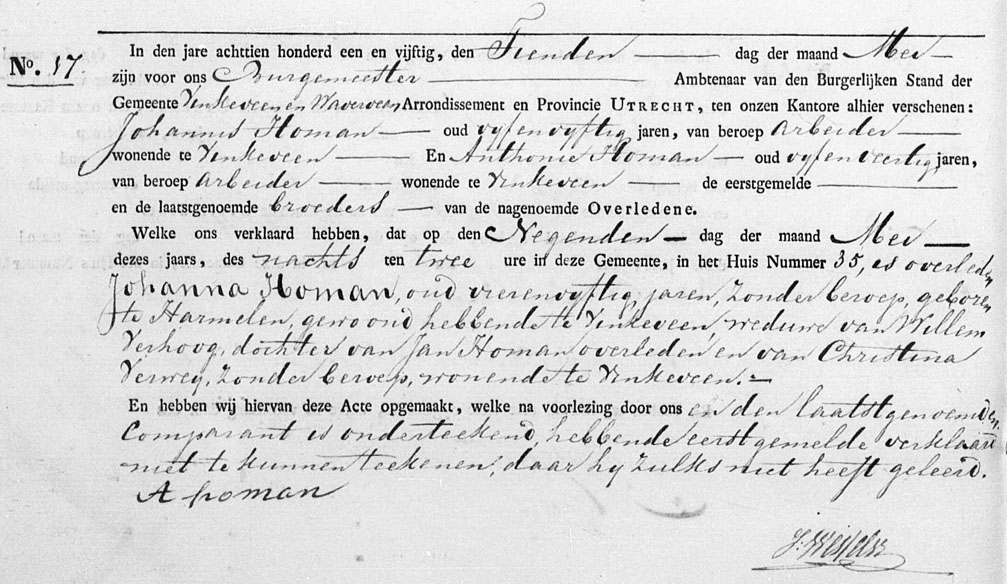 In den jare achttien honderd een en vijftig, den Tienden dag der maand Mei
No. 17. zijn voor ons Burgemeester Ambtenaar van den Burgerlijken Stand der
Gemeente Vinkeveen en Waverveen Arrondissement en Provincie UTRECHT, ten onzen Kantore alhier verschenen:
Johannis Homan oud vyfenvyftig jaren, van beroep arbeider
wonende te Vinkeveen En Anthonie Homan oud vyfenveertig jaren,
van beroep arbeider wonende te Vinkeveen de eerstgemelde
en de laatstgenoemde broeders van de nagenoemde Overledene.
Welke ons verklaard hebben, dat op den Negenden dag der maand Mei
dezes jaars, des nachts ten twee ure in deze Gemeente, in het Huis Nummer 35, is overleden
Johanna Homan, oud vierenvyftig jaren, zonder beroep, geboren
te Harmelen, gewoond hebbende te Vinkeveen weduwe van Willem
Verhoog, dochter van Jan Homan overleden en van Christina
Verwey, zonder beroep, wonende te Vinkeveen.
En hebben wij hiervan deze Acte opgemaakt, welke na voorlezing door ons en den laatstgenoemden
Comparant is onderteekend, hebbende eerstgemelde verklaard
niet te kunnen teekenen, daar hy zulks niet heeft geleerd.
A homan